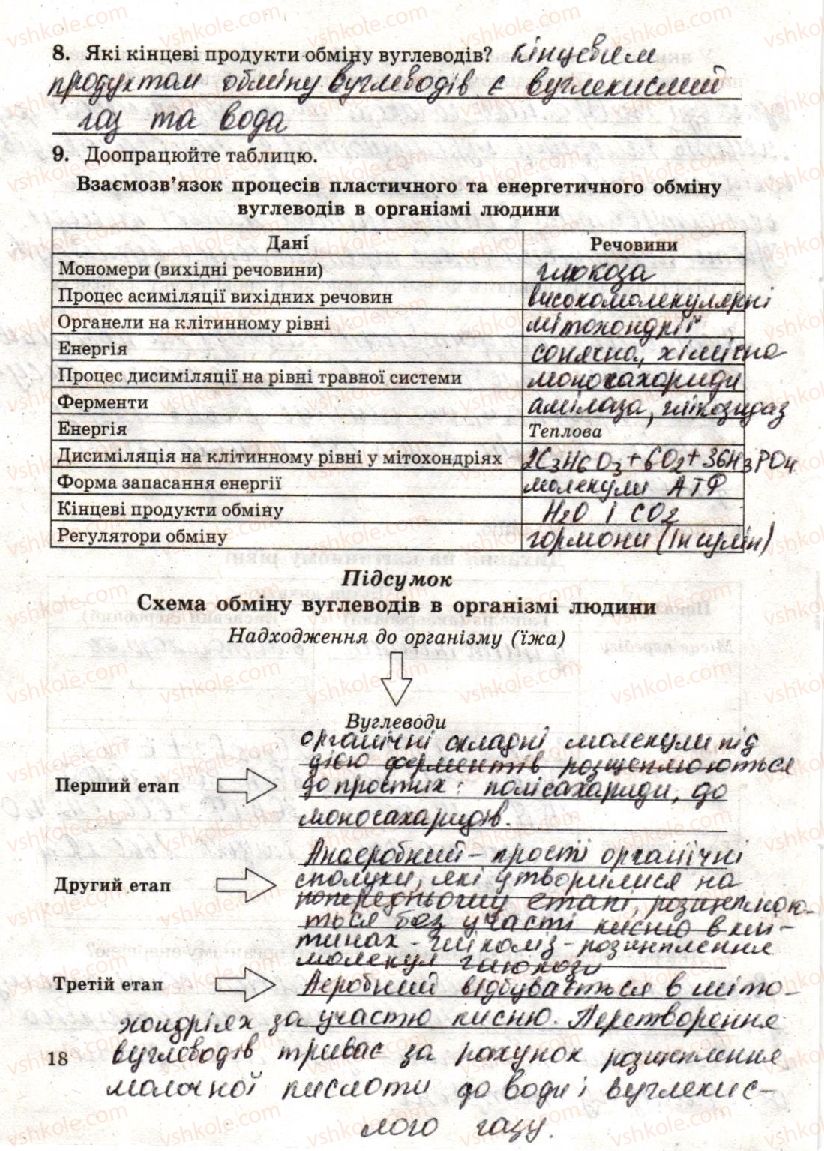 8. Які кінцеві продукти обміну вуглеводів? Кінцевим
продуктом обміну вуглеводів є вуглекислий
газ та вода
9. Доопрацюйте таблицю.
Взаємозв'язок процесів пластичного та енергетичного обміну
вуглеводів в організмі людини
Дані Речовини
Мономери (вихідні речовини) глюкоза
Процес асиміляції вихідних речовин високомолекулярні
Органели на клітинному рівні мітохондрії
Енергія сонячна, хімічна
Процес дисиміляції на рівні травної системи моносахариди
Ферменти амілаза, глікозидаз
Енергія Теплова
Дисиміляція на клітинному рівні у мітохондріях 2C3H6O3+6O2+36H3PO4
Форма запасання енергії молекули АТФ
Кінцеві продукти обміну H2O і CO2
Регулятори обміну гормони (Інсулін)
Підсумок
Схема обміну вуглеводів в організмі людини
Надходження до організму (їжа)
Вуглеводи
Перший етап
органічні складні молекули під
дією ферментів розщеплюються
до простих: полісахариди, до
моносахаридів.
Другий етап
Анаеробний - прості органічні
сполуки, які утворилися на
попередньому етапі, розщеплюю-
ться без участі кисню в клі-
тинах - гліколіз - розщеплення
молекул глюкози
Третій етап
Аеробний відбувається в міто-
хондріях за участю кисню. Перетворення
вуглеводів триває за рахунок розщеплення
молочної кислоти до води і вуглекис-
лого газу.
18
vshkole.com